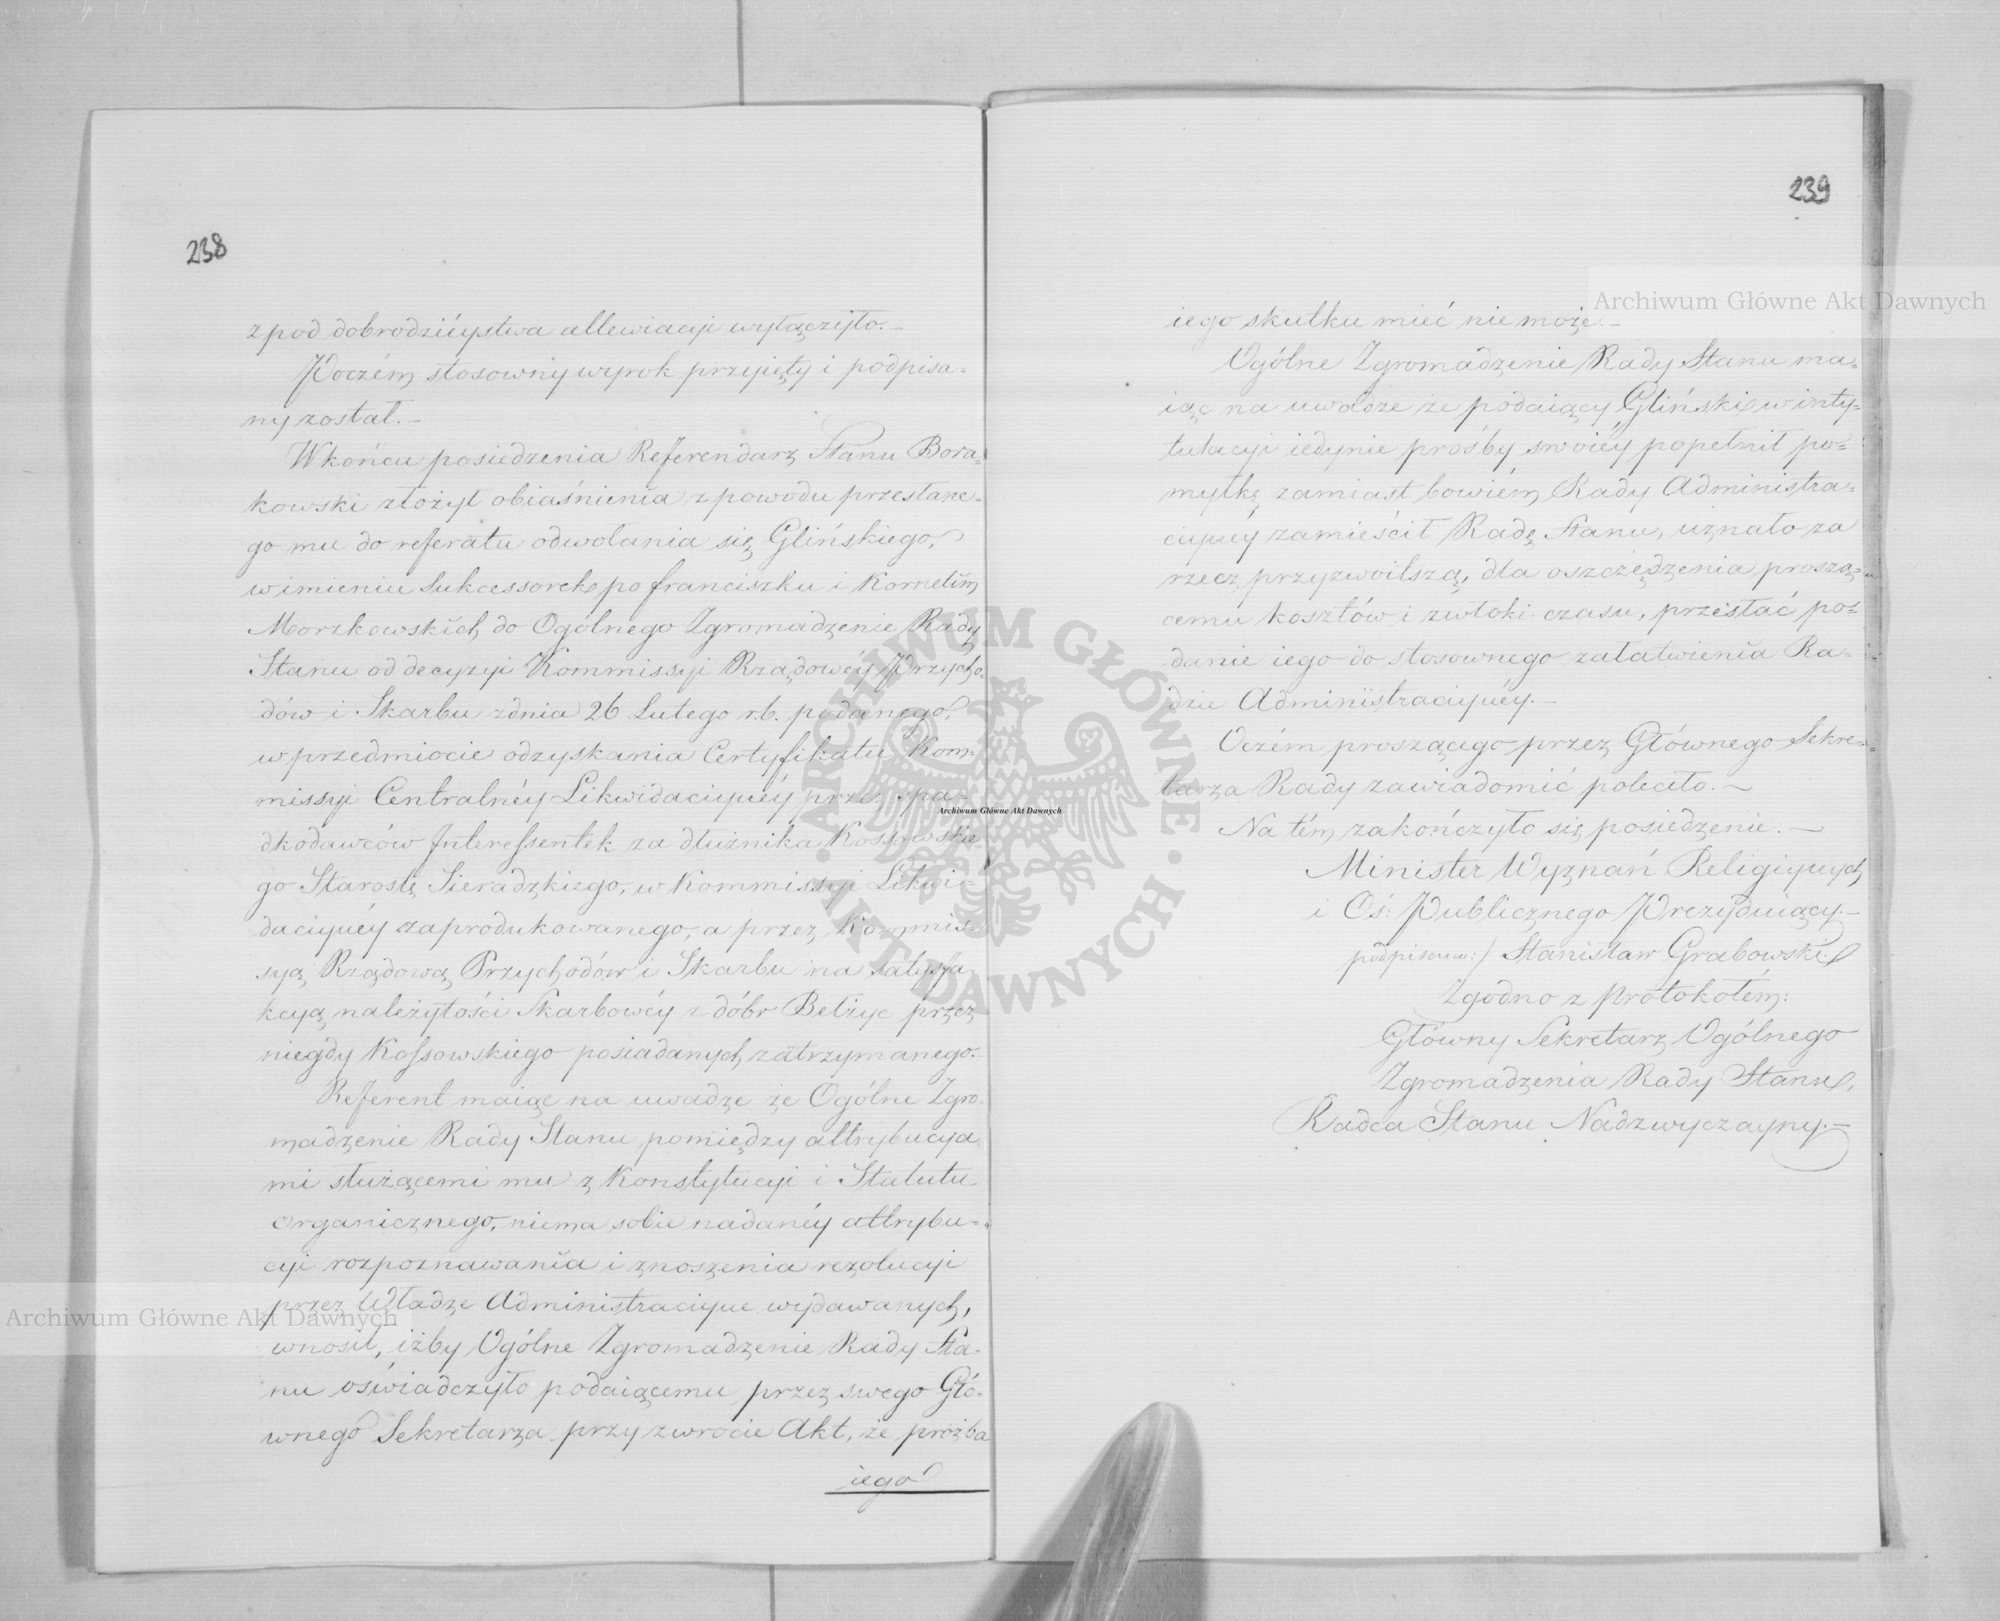 238
z pod dobrodziéystwa allewiacyi wyłączyło.–
Poczém stosowny wyrok przyięty i podpisa-
ny został.–
W końcu posiedzenia Referendarz Stanu Bora-
kowski złożył obiaśnienia z powodu przesłane-
go mu do referatu odwołania się Glińskiego,
w imieniu Sukcessorek po franciszku i Kornelim
Morzkowskich do Ogólnego Zgromadzenie Rady
Stanu od decyzyi Kommissyi Rządowéy Przycho-
dów i Skarbu z dnia 26 Lutego r.b. podanego,
w przedmiocie odzyskania Certyfikatu Kom-
missyi Centralnéy Likwidacyinéy przez spa-
dkodawców Interessentek za dłużnika Kossowskie
go Starostę Sieradzkiego, w Kommissyi Likwi-
dacyinéy zaprodukowanego, a przez Kommis-
syą Rządową Przychodów i Skarbu na satysfa
kcyą należytości Skarbowéy z dóbr Bełżyc przez
niegdy Kossowskiego posiadanych zatrzymanego.
Referent maiąc na uwadze że Ogólne Zgro-
madzenie Rady Stanu pomiędzy attrybucya
mi służącemi mu z Konstytucyi i Statutu
organicznego, niema sobie nadanéy attrybu-
cyi rozpoznawania i znoszenia rezolucyi
przez Władze Administracyine wydawanych,
wnosił, iżby Ogólne Zgromadzenie Rady Sta-
nu oświadczyło podaiącemu przez swego Głó-
wnego Sekretarza przy zwrocie Akt, że proźba
iego
239
iego skutku mieć nie może.–
Ogólne Zgromadzenie Rady Stanu ma-
iąc na uwadze że podaiący Gliński w inty-
tulacyi iedynie prośby swoiéy popełnił po-
myłkę zamiast bowiém Rady Administra-
cyinéy zamieścił Radę Stanu, uznało za
rzecz przyzwoitszą, dla oszczędzenia proszą-
cemu kosztów i zwłoki czasu, przesłać po-
danie iego do stosownego załatwienia Ra-
dzie Administracyinéy.–
Oczém proszącego przez Głównego Sekre-
tarza Rady zawiadomić poleciło.–
Na tém zakończyło się posiedzenie.–
Minister Wyznań Religiynych
i Oś: Publicznego Prezyduiący.–
podpisano:/ Stanisław Grabowski
Zgodno z Protokołem:
Główny Sekretarz Ogólnego
Zgromadzenia Rady Stanu,
Radca Stanu Nadzwyczayny.–
Archiwum Główne Akt Dawnych
Archiwum Główne Akt Dawnych
Archiwum Główne Akt Dawnych
ARCHIWUM GŁÓWNE AKT DAWNYCH